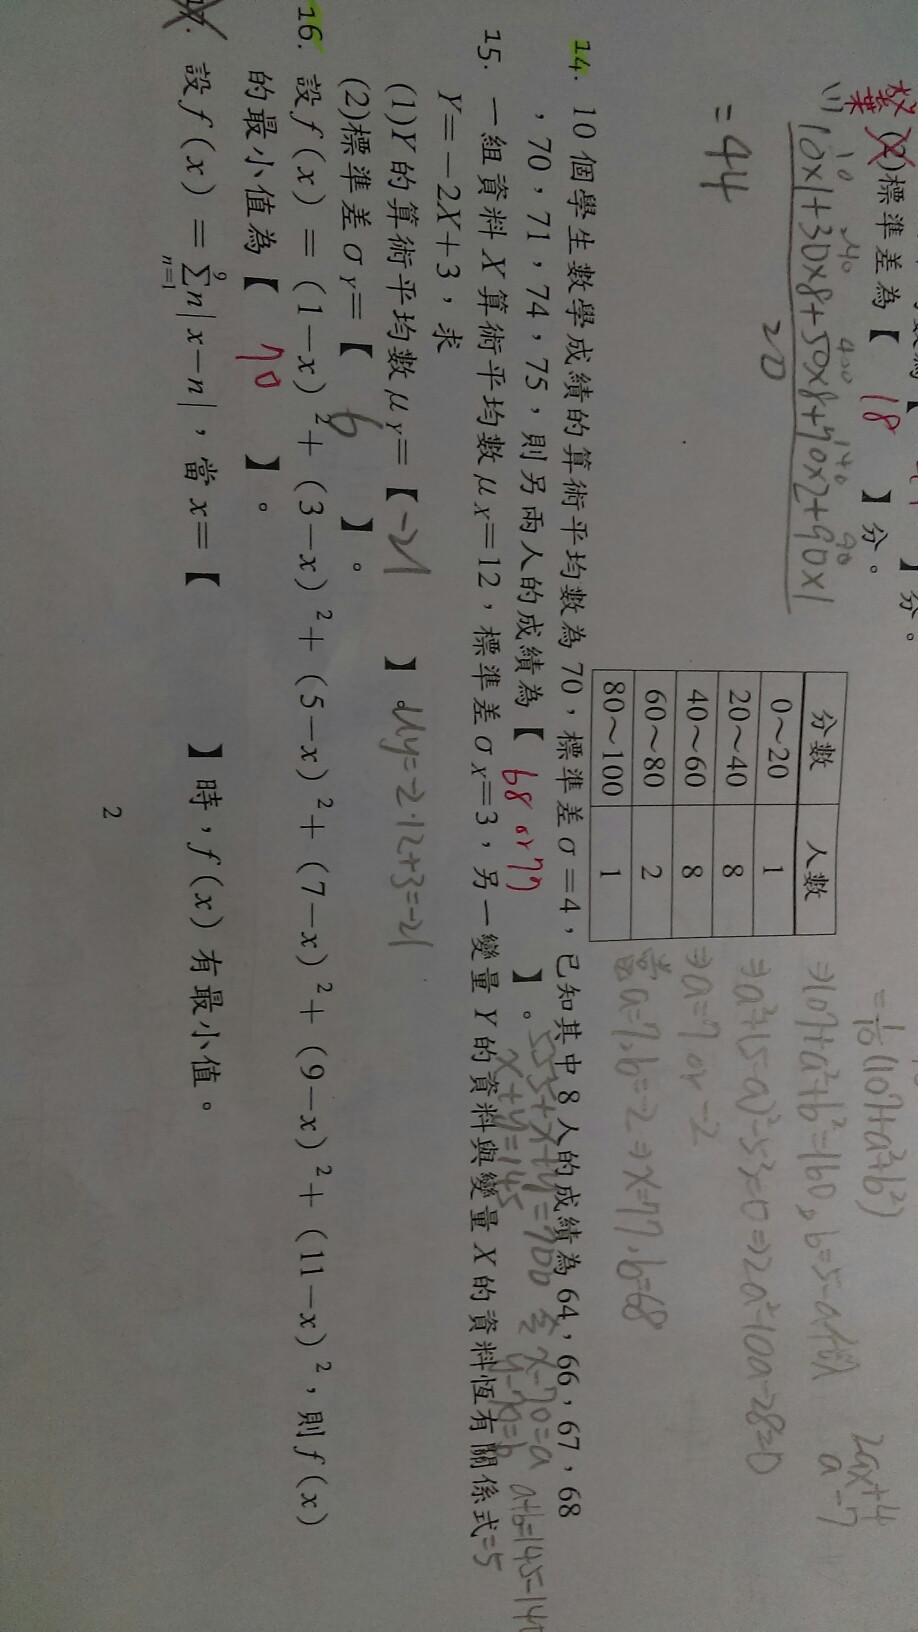 】分。
教業 (2)標準差為【 18 】分。
(1) 10 240 400 140 90
10×1+30×8+50×8+70×2+90×1
20
=44
分數 人數
0～20 1
20～40 8
40～60 8
60～80 2
80～100 1
=1/10(107+a²+b²)
⇒107+a²+b²=160, b=5-a
⇒a²+(5-a)²-53=0⇒2a²-10a-28=0
⇒a=7 or -2
當a=7,b=-2⇒x=77,b=68
a -7
14. 10 個學生數學成績的算術平均數為 70，標準差σ=4，已知其中 8 人的成績為 64，66，67，68
，70，71，74，75，則另兩人的成績為【 68 or 77 】。
555+x+y=700
x+y=145
令 x-70=a
y-70=b
a+b=145-140
=5
15. 一組資料 X 算術平均數μX=12，標準差σX=3，另一變量 Y 的資料與變量 X 的資料恆有關係式
Y=-2X+3，求
(1)Y 的算術平均數μY=【 -21 】 μy=-2·12+3=-21
(2)標準差σY=【 6 】。
16. 設 f(x)=(1-x)²+(3-x)²+(5-x)²+(7-x)²+(9-x)²+(11-x)²，則 f(x)
的最小值為【 70 】。
17. 設 f(x)=∑⁹ₙ₌₁n|x-n|，當 x=【 】時，f(x)有最小值。
2